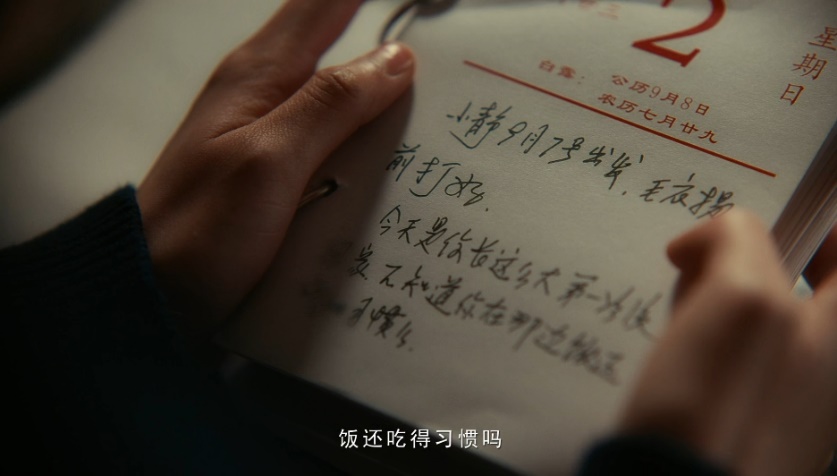 2
星期日
白露：
公历9月8日
农历七月廿九
小静9月7号出发，毛衣提
前打好.
今天是你长这么大第一次没
不知道你在那边
习惯么.
饭还吃得习惯吗